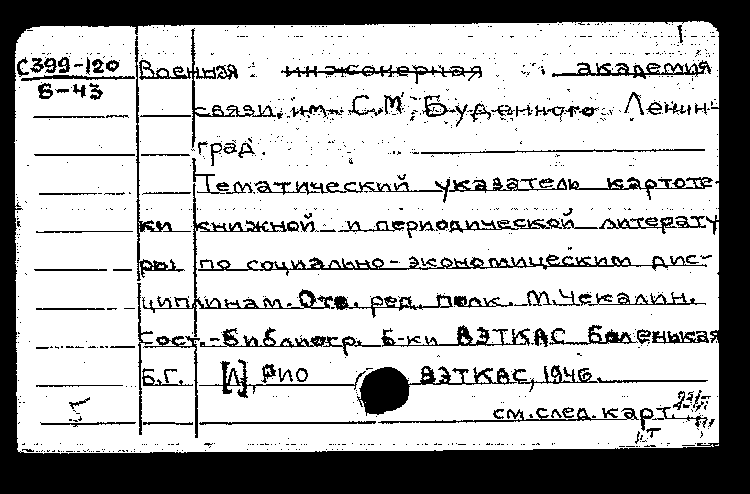 1
С399-120 Военная инженерная академия
Б-43
связи им. С.М. Буденного Ленин-
град.
Тематический указатель картоте-
ки книжной и периодической литерату
ры по социально-экономическим дис-
циплинам. Отв. ред. полк. М. Чекалин.
Сост.-библиогр. б-ки ВЭТКАС Беленькая
Б.Г. [Л], РИО ВЭТКАС, 1946.
5 см. след. карт.